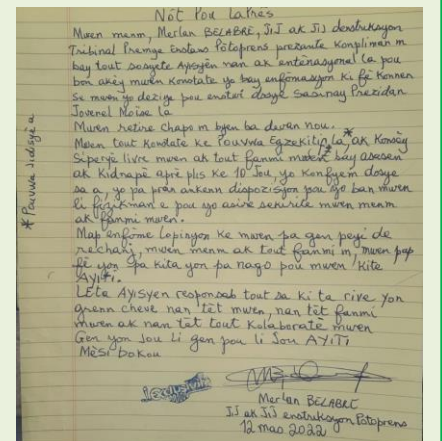 Nòt Pou Laprès
Mwen menm, Merlan BELABRE, JiJ ak JiJ denstriksyon
Tribinal Premye Enstans Pòtoprens prezante konpliman m
bay tout sosyete Ayisyèn nan ak entènasyonal la pou
bon akèy mwen konstate yo bay enfòmasyon ki fè konnen
Se mwen yo dezige pou enstwi dosye sasinay Prezidan
Jovenel Moïse la
Mwen retire chapo m byen ba devan nou.
Mwen tout konstate ke Pouvwa Egzekitif la,* ak Konsèy
Siperyè livre mwen ak tout fanmi mwen* bay asasen
ak Kidnapè aprè plis ke 10 Jou, yo konfye m dosye
sa a, yo pa pran ankenn dispozisyon pou yo ban mwen
li fizikman e pou yo asire sekirite mwen menm
ak fanmi mwen.
Map enfòme lopinyon ke mwen pa gen peyi de
rechanj, mwen menm ak tout fanmi m, mwen pap
fè yon spa kita yon pa nago pou mwen kite
AYITI.
Leta Ayisyen responsab tout sa ki ta rive yon
grenn cheve nan tèt mwen, nan tèt fanmi
mwen ak nan tèt tout kolaboratè mwen
Gen yon Jou li gen pou li Jou AYITI
Mèsi bokou
Merlan BELABRE
JiJ ak JiJ enstriksyon Pòtoprens
12 mas 2022
* Pouvwa Jidisyè a